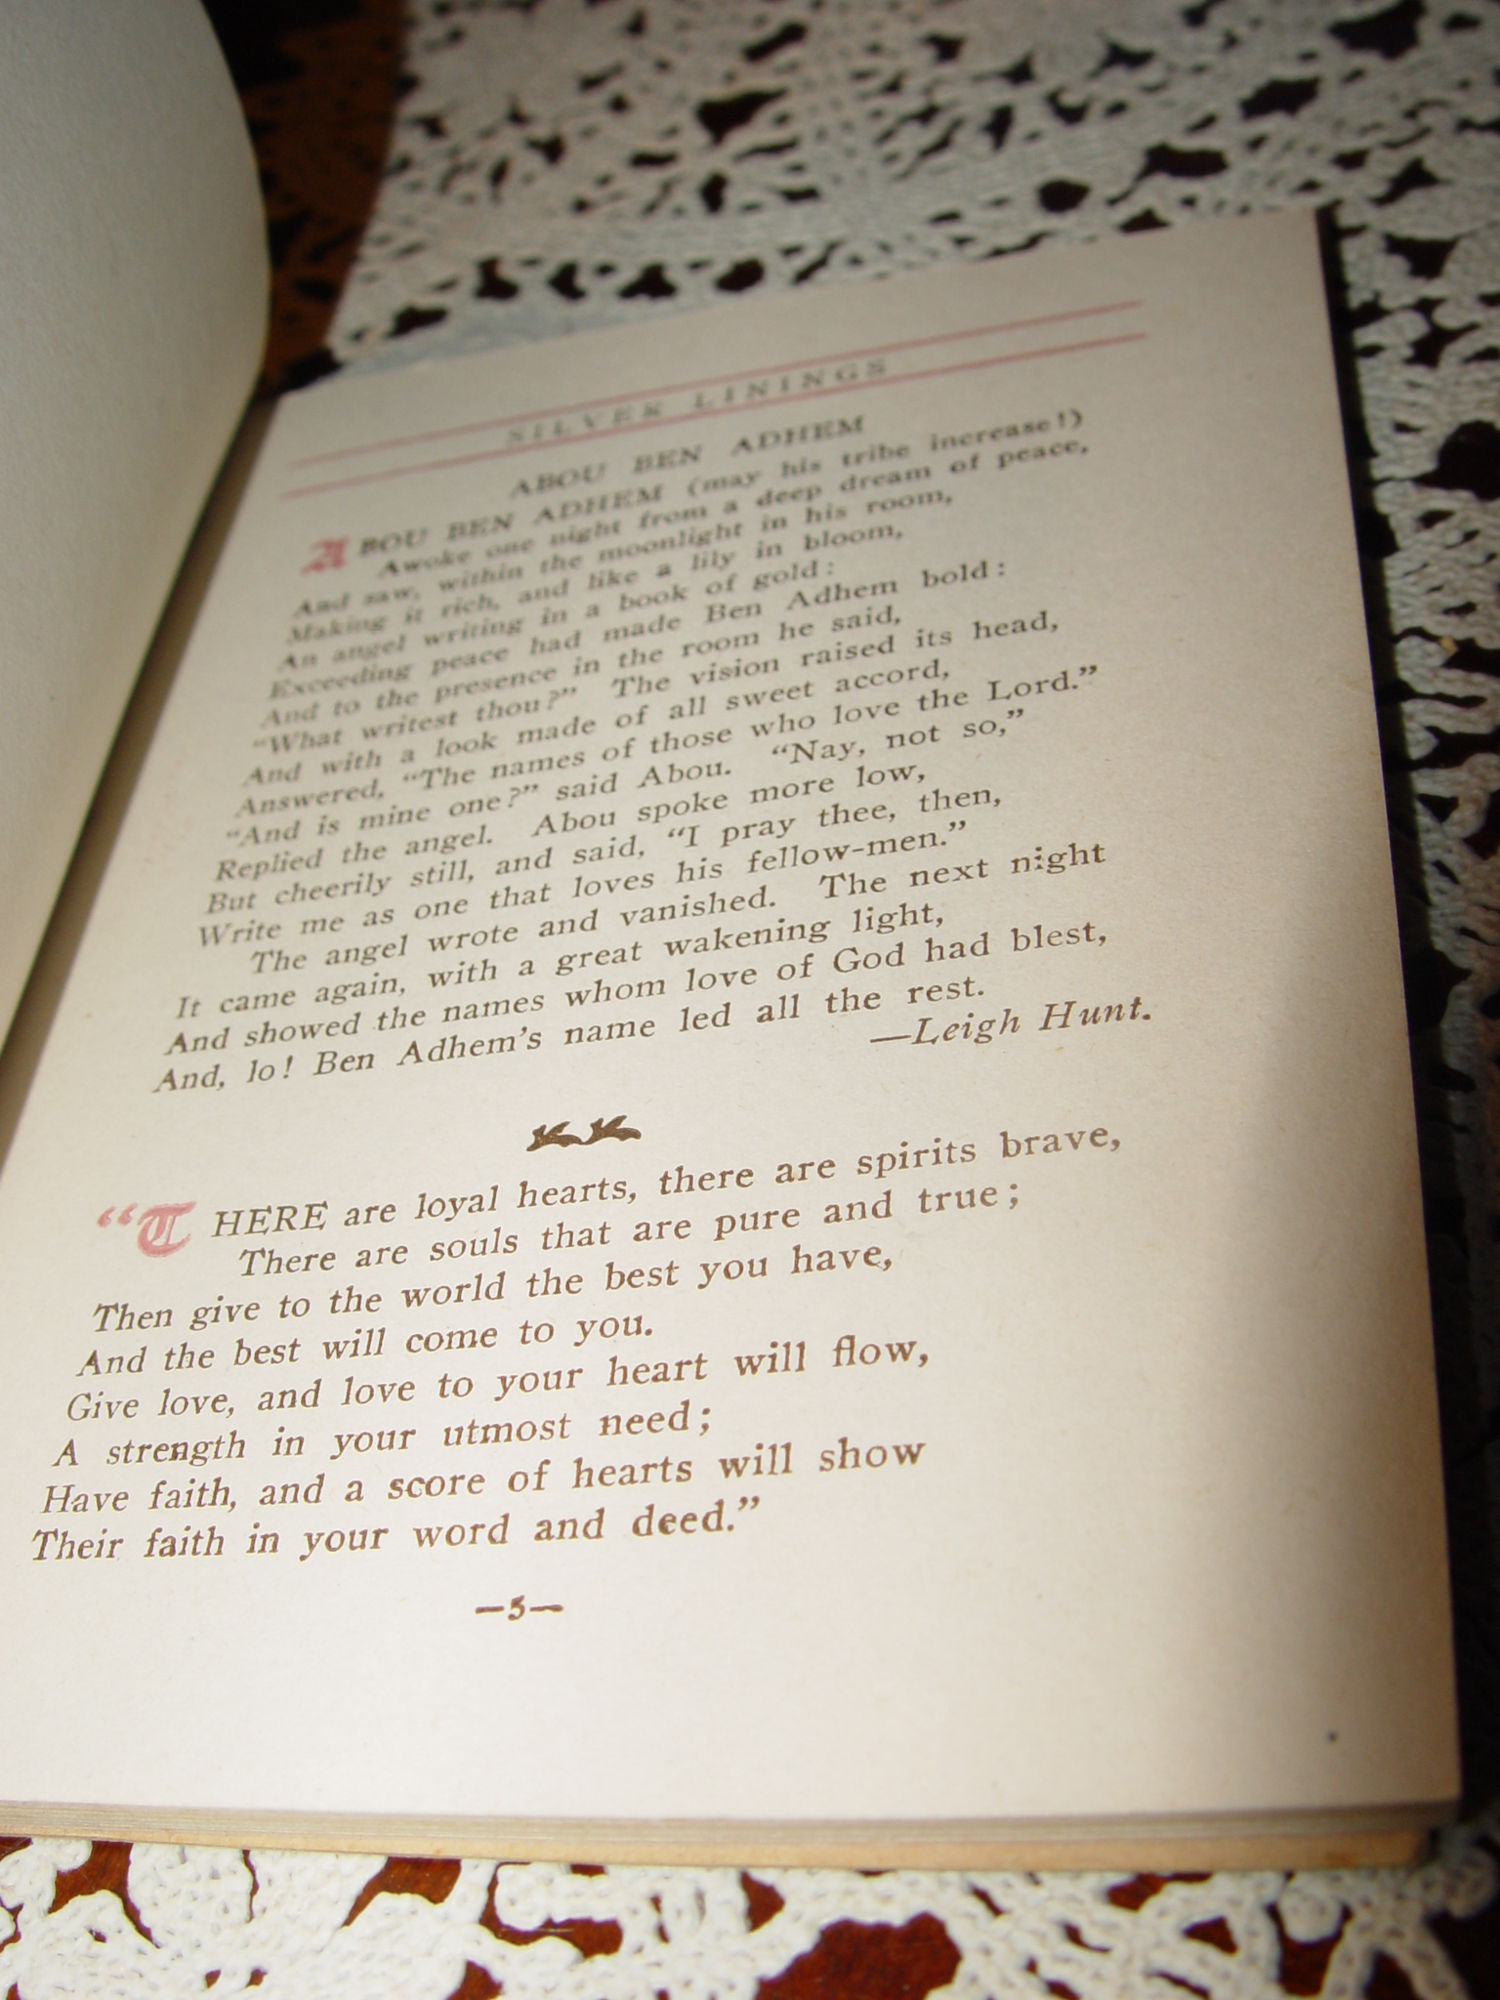 SILVER LININGS
ABOU BEN ADHEM
ABOU BEN ADHEM (may his tribe increase!)
Awoke one night from a deep dream of peace,
And saw, within the moonlight in his room,
Making it rich, and like a lily in bloom,
An angel writing in a book of gold:
Exceeding peace had made Ben Adhem bold:
And to the presence in the room he said,
“What writest thou?” The vision raised its head,
And with a look made of all sweet accord,
Answered, “The names of those who love the Lord.”
“And is mine one?” said Abou. “Nay, not so,”
Replied the angel. Abou spoke more low,
But cheerily still, and said, “I pray thee, then,
Write me as one that loves his fellow-men.”
The angel wrote and vanished. The next night
It came again, with a great wakening light,
And showed the names whom love of God had blest,
And, lo! Ben Adhem’s name led all the rest.
—Leigh Hunt.
“THERE are loyal hearts, there are spirits brave,
There are souls that are pure and true;
Then give to the world the best you have,
And the best will come to you.
Give love, and love to your heart will flow,
A strength in your utmost need;
Have faith, and a score of hearts will show
Their faith in your word and deed.”
—5—